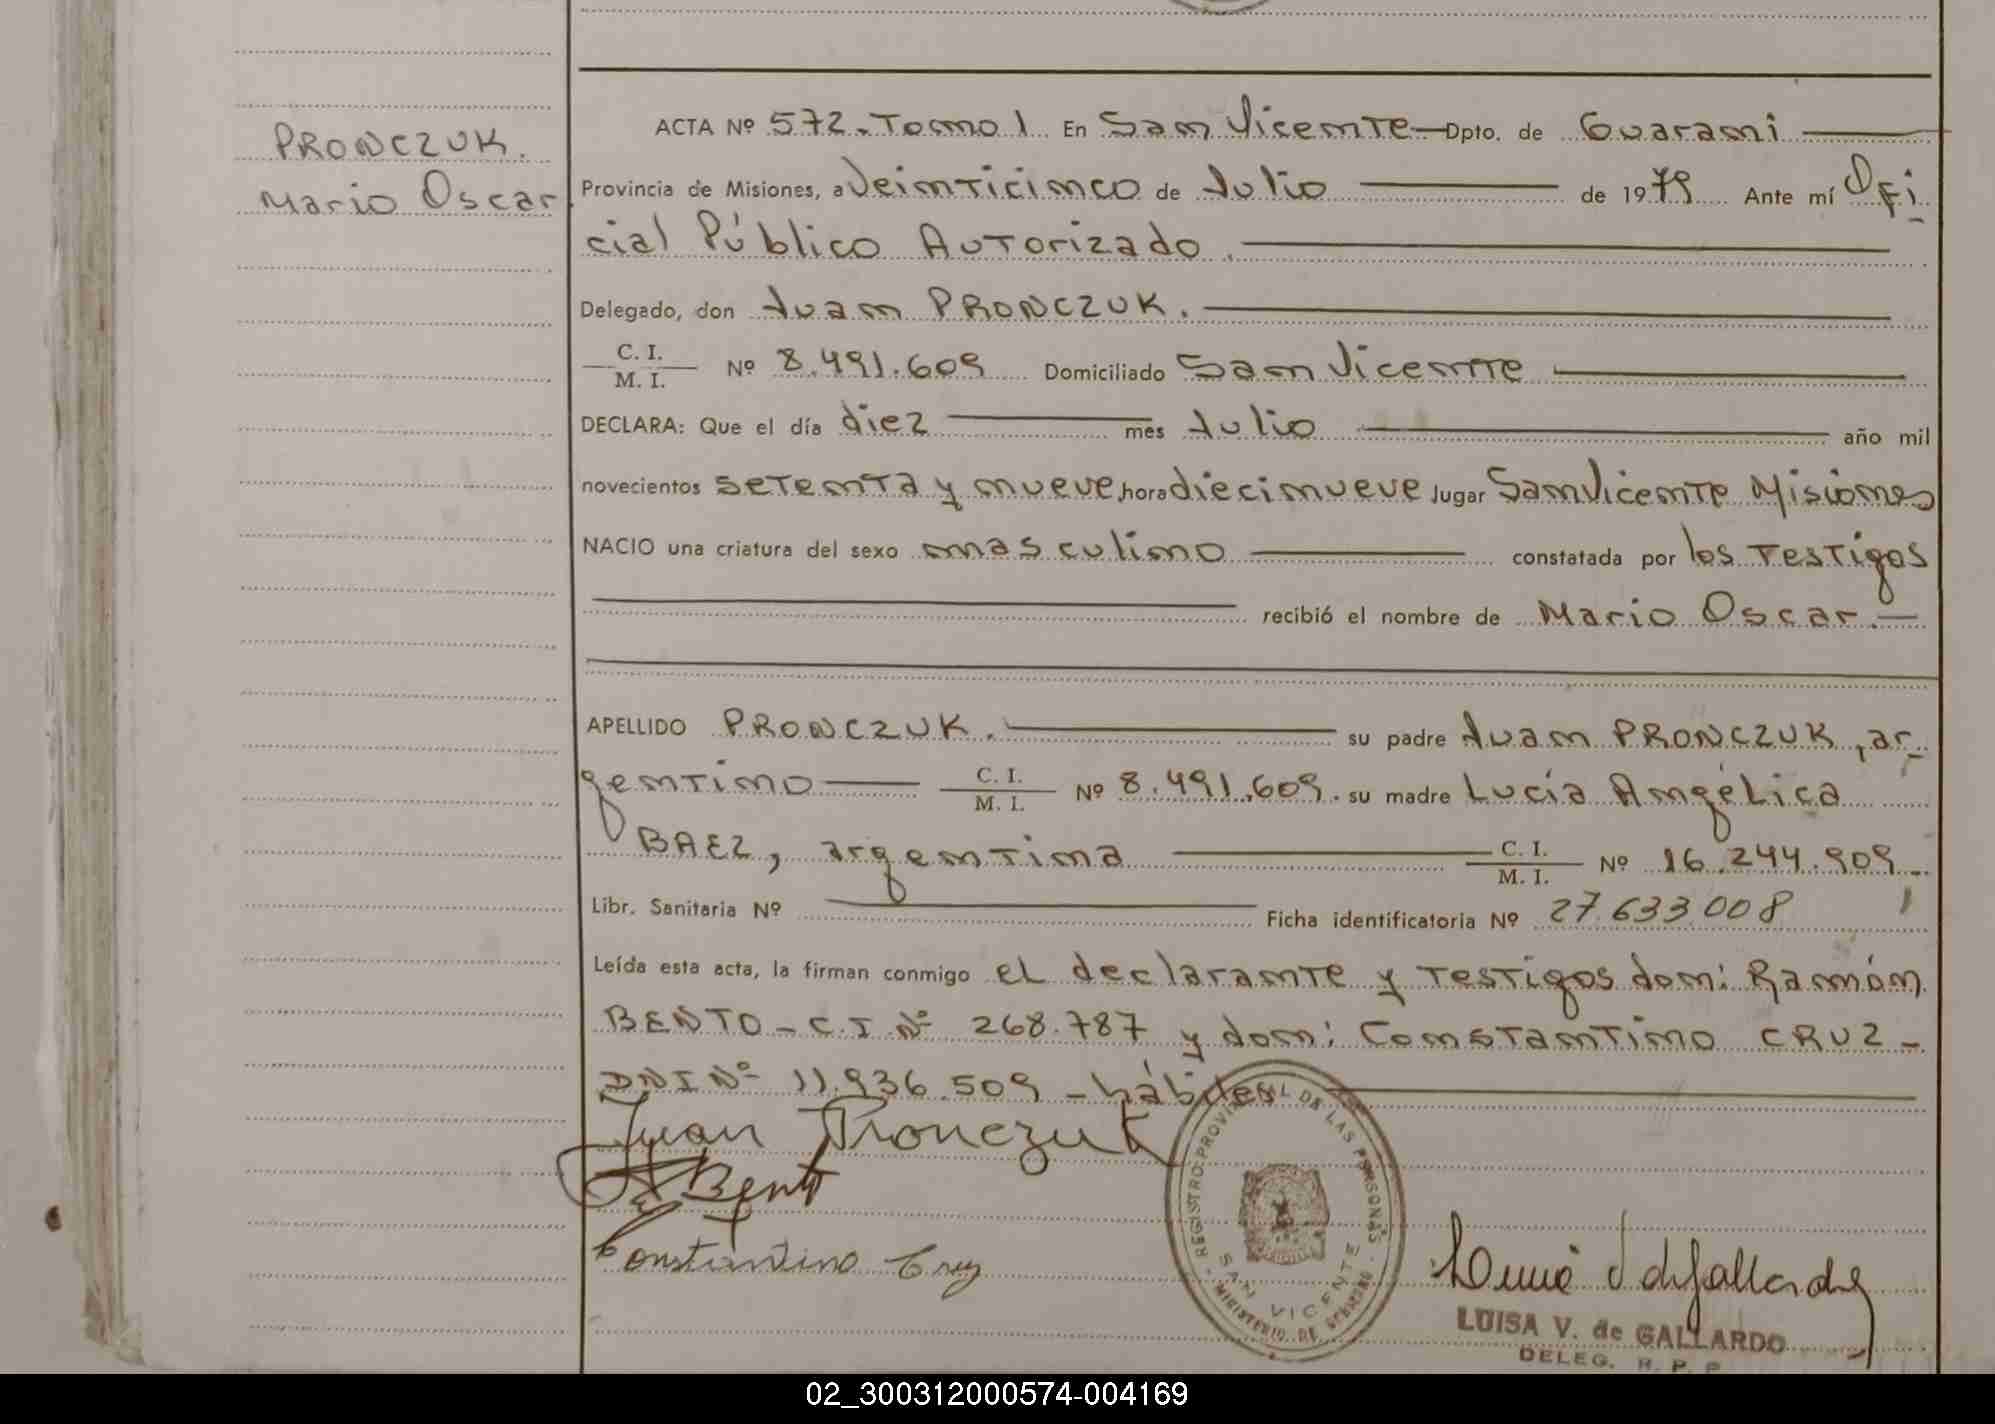 PRONCZUK.
Mario Oscar
ACTA Nº 572. Tomo 1 En San Vicente Dpto. de Guaraní
Provincia de Misiones, a Veinticinco de Julio de 1979 Ante mí Ofi
cial Público Autorizado.
Delegado, don Juan PRONCZUK.
C. I.
M. I. Nº 8.491.609 Domiciliado San Vicente
DECLARA: Que el día diez mes Julio año mil
novecientos setenta y nueve, hora diecinueve lugar San Vicente Misiones
NACIO una criatura del sexo masculino constatada por los Testigos
recibió el nombre de Mario Oscar.
APELLIDO PRONCZUK. su padre Juan PRONCZUK, ar-
gentino C. I. M. I. Nº 8.491.609. su madre Lucía Angélica
BAEZ, argentina C. I. M. I. Nº 16.244.909
Libr. Sanitaria Nº Ficha identificatoria Nº 27.633.008
Leída esta acta, la firman conmigo el declarante y Testigos don: Ramón
BENTO - C.I Nº 268.787 y don: Constantino CRUZ -
DNI Nº 11.936.509 - hábiles
Juan Pronczuk
Bento
Constantino Cruz
REGISTRO PROVINCIAL DE LAS PERSONAS
SAN VICENTE
MINISTERIO DE GOBIERNO
LUISA V. de GALLARDO
DELEG. R. P. P.
02_300312000574-004169